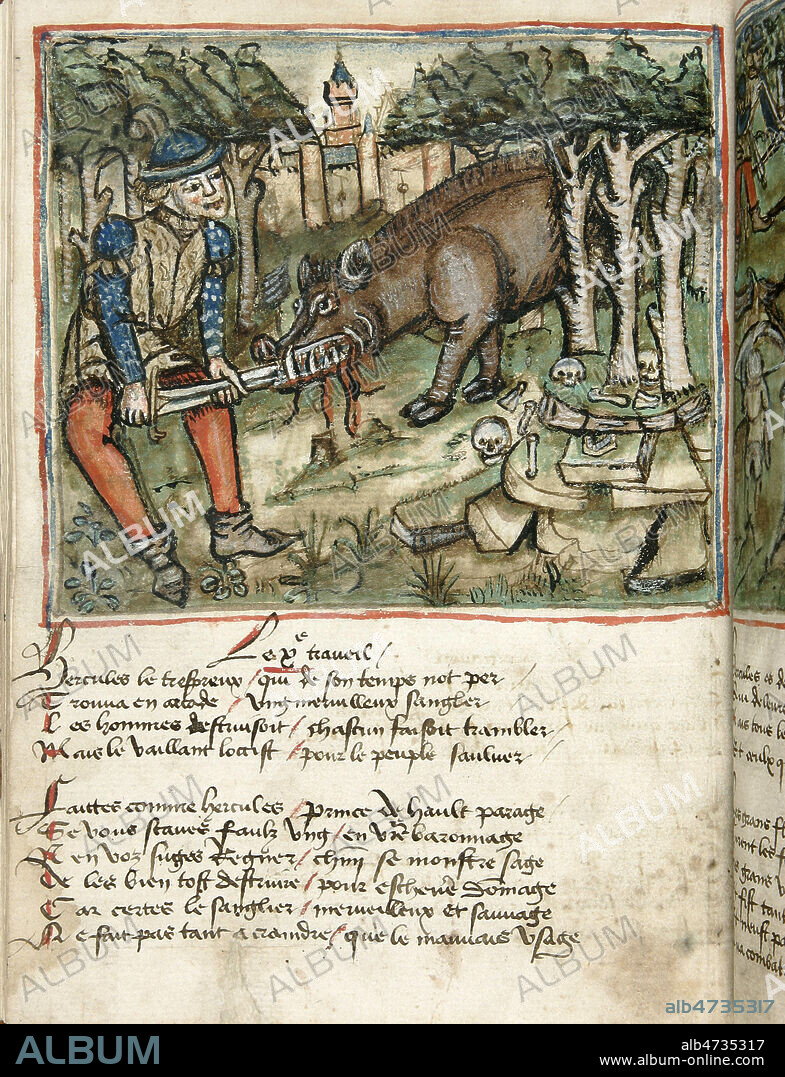 Le xe traveil
Hercules le trespreux / qui de son temps not per
Trouva en arcade / ung merveilleux sanglier
Les hommes destruisoit / chascun faisoit trambler
Mais le vaillant loccist / pour le peuple saulver
Faittes comme hercules / prince de hault parage
Se vous scaves faulx ung / en vre baronnage
En voz suges regner / chm se monstre sage
De les bien tost destruire / pour eschever domage
Car certes le sanglier / merveilleux et sauvage
Ne fait pas tant a craindre / que le mauvais usage
ALBUM
alb4735317
ALBUM
alb4735317
www.album-online.com